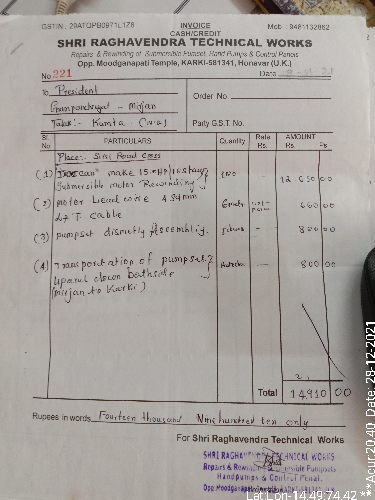 GSTIN: 29ATQPB0971L1Z6 INVOICE Mob : 9481132862
CASH/CREDIT
SHRI RAGHAVENDRA TECHNICAL WORKS
Repairs & Rewinding of Submersible Pumpset, Hand Pumps & Control Panels
Opp. Moodganapati Temple, KARKI-581341, Honavar (U.K.)
No. 221 Date
To President
Grampanchayat - Mirjan
Taluk:- Kumta (U.K)
Order No.
Party G.S.T. No.
Sl. No. PARTICULARS Quantity Rate Rs. AMOUNT Rs. Ps.
Place:- Sirsi Road Cross
(1) make 15.0HP/10stage 1No
Submersible motor Rewinding 12650 00
(2) motor Lead wire 4 Sqmm 6mtr 660 00
cable
(3) pumpset Assemblig. 800 00
(4) Transportation of pumpset 800 00
up and down bothside
(Mirjan to Karki)
Total 14910 00
Rupees in words Fourteen thousand Nine hundred ten only
For Shri Raghavendra Technical Works
SHRI RAGHAVENDRA TECHNICAL WORKS
Repairs & Rewinding Submersible Pumpsets
Handpumps & Control Panel.
Opp. Moodganapati
Lat,Lon-14.49,74.42 ***Acur:20.40 Date: 28-12-2021